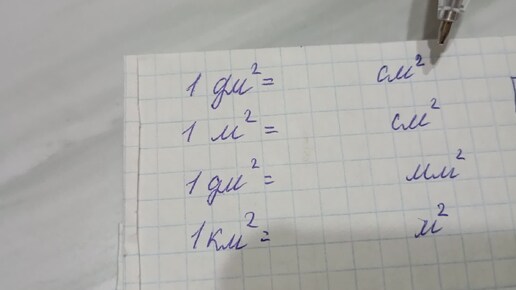 1 дм² = см²
1 м² = см²
1 дм² = мм²
1 км² = м²